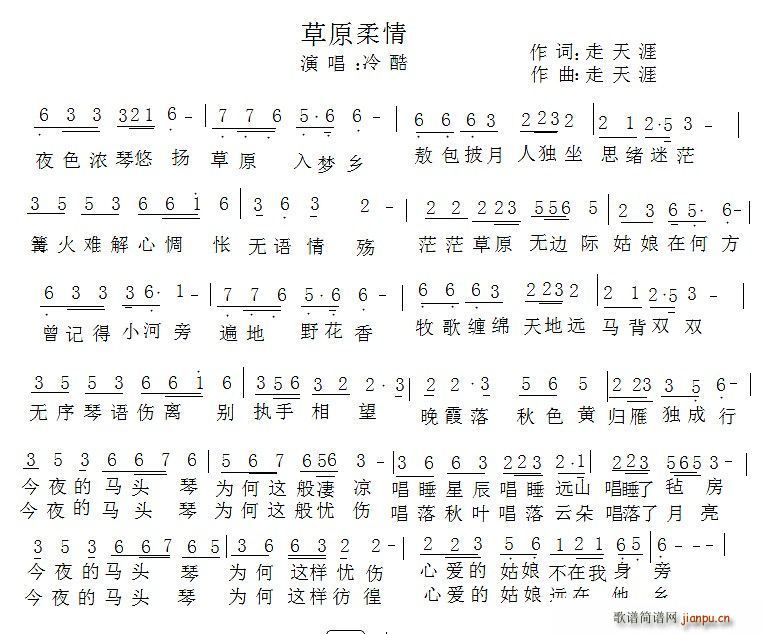 草原柔情
演唱:冷酷
作词:走天涯
作曲:走天涯
6 3 3 3 2 1 6 - | 7 7 6 5·6 6 - | 6 6 6 3 2 2 3 2 | 2 1 2·5 3 - |
夜色浓琴悠扬 草原 入梦乡 敖包披月 人独坐 思绪迷茫
3 5 5 3 6 6 1 6 | 3 6 3 2 - | 2 2 2 2 3 5 5 6 5 | 2 3 6 5· 6 - |
篝火难解心惆 怅 无语情 殇 茫茫草原 无边际 姑娘在何方
6 3 3 3 6· 1 - | 7 7 6 5·6 6 - | 6 6 6 3 2 2 3 2 | 2 1 2·5 3 - |
曾记得 小河旁 遍地 野花香 牧歌缠绵 天地远 马背双双
3 5 5 3 6 6 1 6 | 3 5 6 3 2 2·3 | 2 2·3 5 6 5 | 2 2 3 3 5 6 - |
无序琴语伤离 别 执手相望 晚霞落 秋色黄 归雁 独成行
3 5 3 6 6 7 6 | 5 6 7 6 5 6 3 - | 3 6 6 3 2 2 3 2·1 | 2 2 3 5 6 5 3 - |
今夜的马头琴 为何这般凄凉 唱睡星辰唱睡远山 唱睡了毡房
今夜的马头琴 为何这般忧伤 唱落秋叶唱落云朵 唱落了月亮
3 5 3 6 6 7 6 5 | 3 6 3 2 2 - | 2 2 3 5 6 1 2 1 6·5 | 6 - - - |
今夜的马头琴 为何这样忧伤 心爱的姑娘不在我身旁
今夜的马头琴 为何这样彷徨 心爱的姑娘远在他乡
歌谱简谱网 jianpu.cn